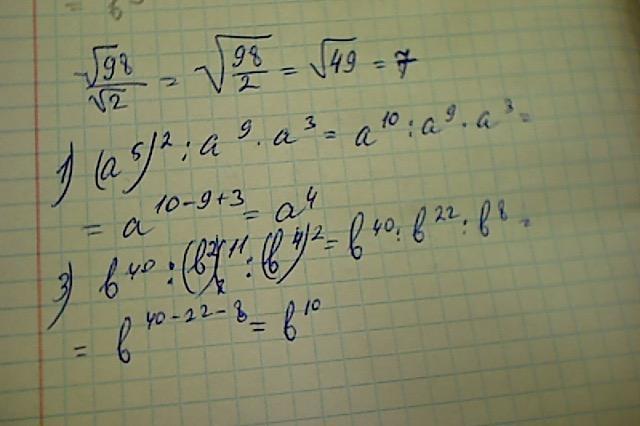 √98/√2 = √(98/2) = √49 = 7
1) (a⁵)² : a⁹ · a³ = a¹⁰ : a⁹ · a³ =
= a¹⁰⁻⁹⁺³ = a⁴
3) b⁴⁰ : (b²)¹¹ : (b⁴)² = b⁴⁰ : b²² : b⁸ =
= b⁴⁰⁻²²⁻⁸ = b¹⁰